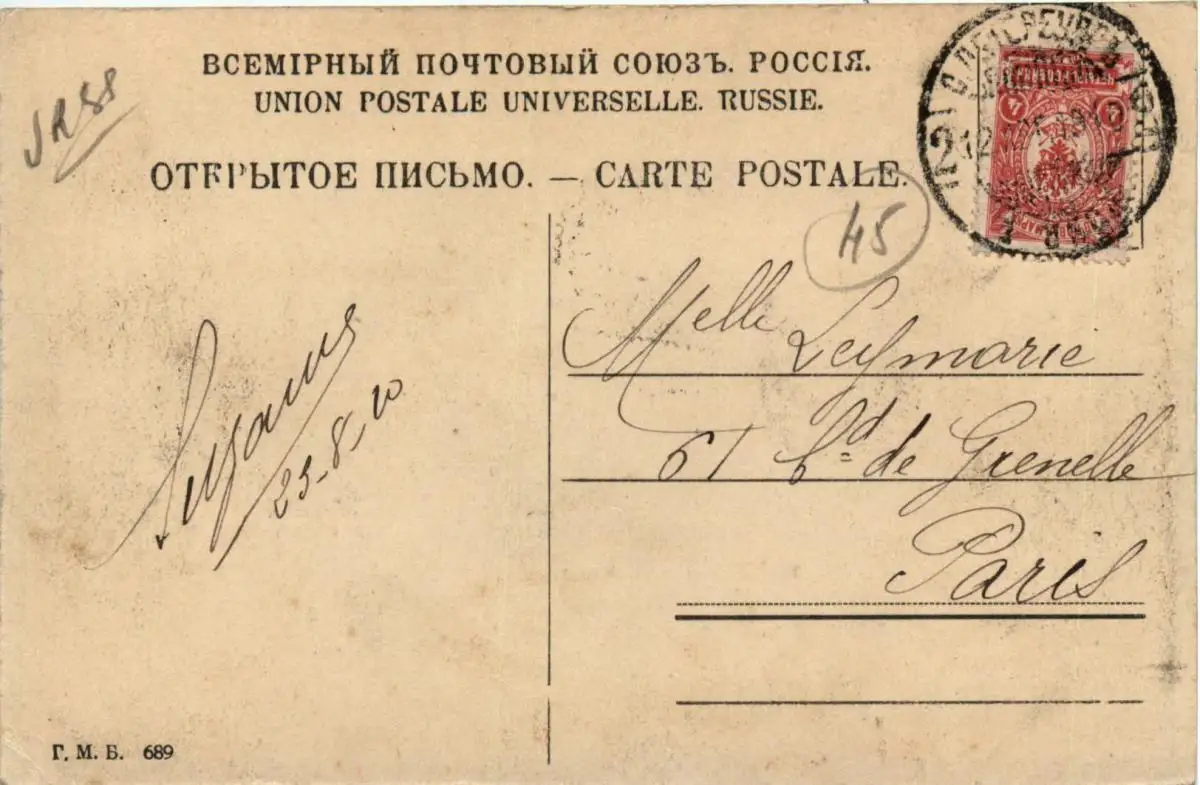 ВСЕМІРНЫЙ ПОЧТОВЫЙ СОЮЗЪ. РОССІЯ.
UNION POSTALE UNIVERSELLE. RUSSIE.
ОТКРЫТОЕ ПИСЬМО. — CARTE POSTALE.
45
Melle Leymarie
61 Bd de Grenelle
Paris
23-8-10
Г. М. Б. 689